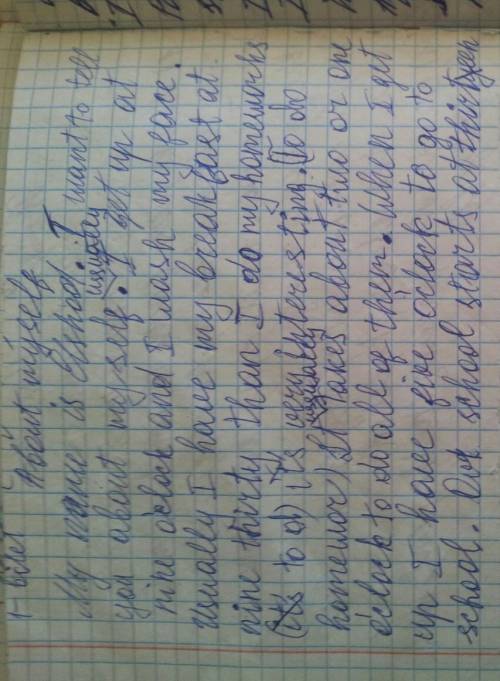 1-bilet About myself
My name is Elshod. I want to tell
you about myself. usually I get up at
nine o'clock and I wash my face.
usually I have my breakfast at
nine thirty than I do my homeworks
(its to d) its very interesting. (To do
homewor) It usually takes about two or one
o'clock to do all of them. When I get
up I have five o'clock to go to
school. Our school starts at thirteen